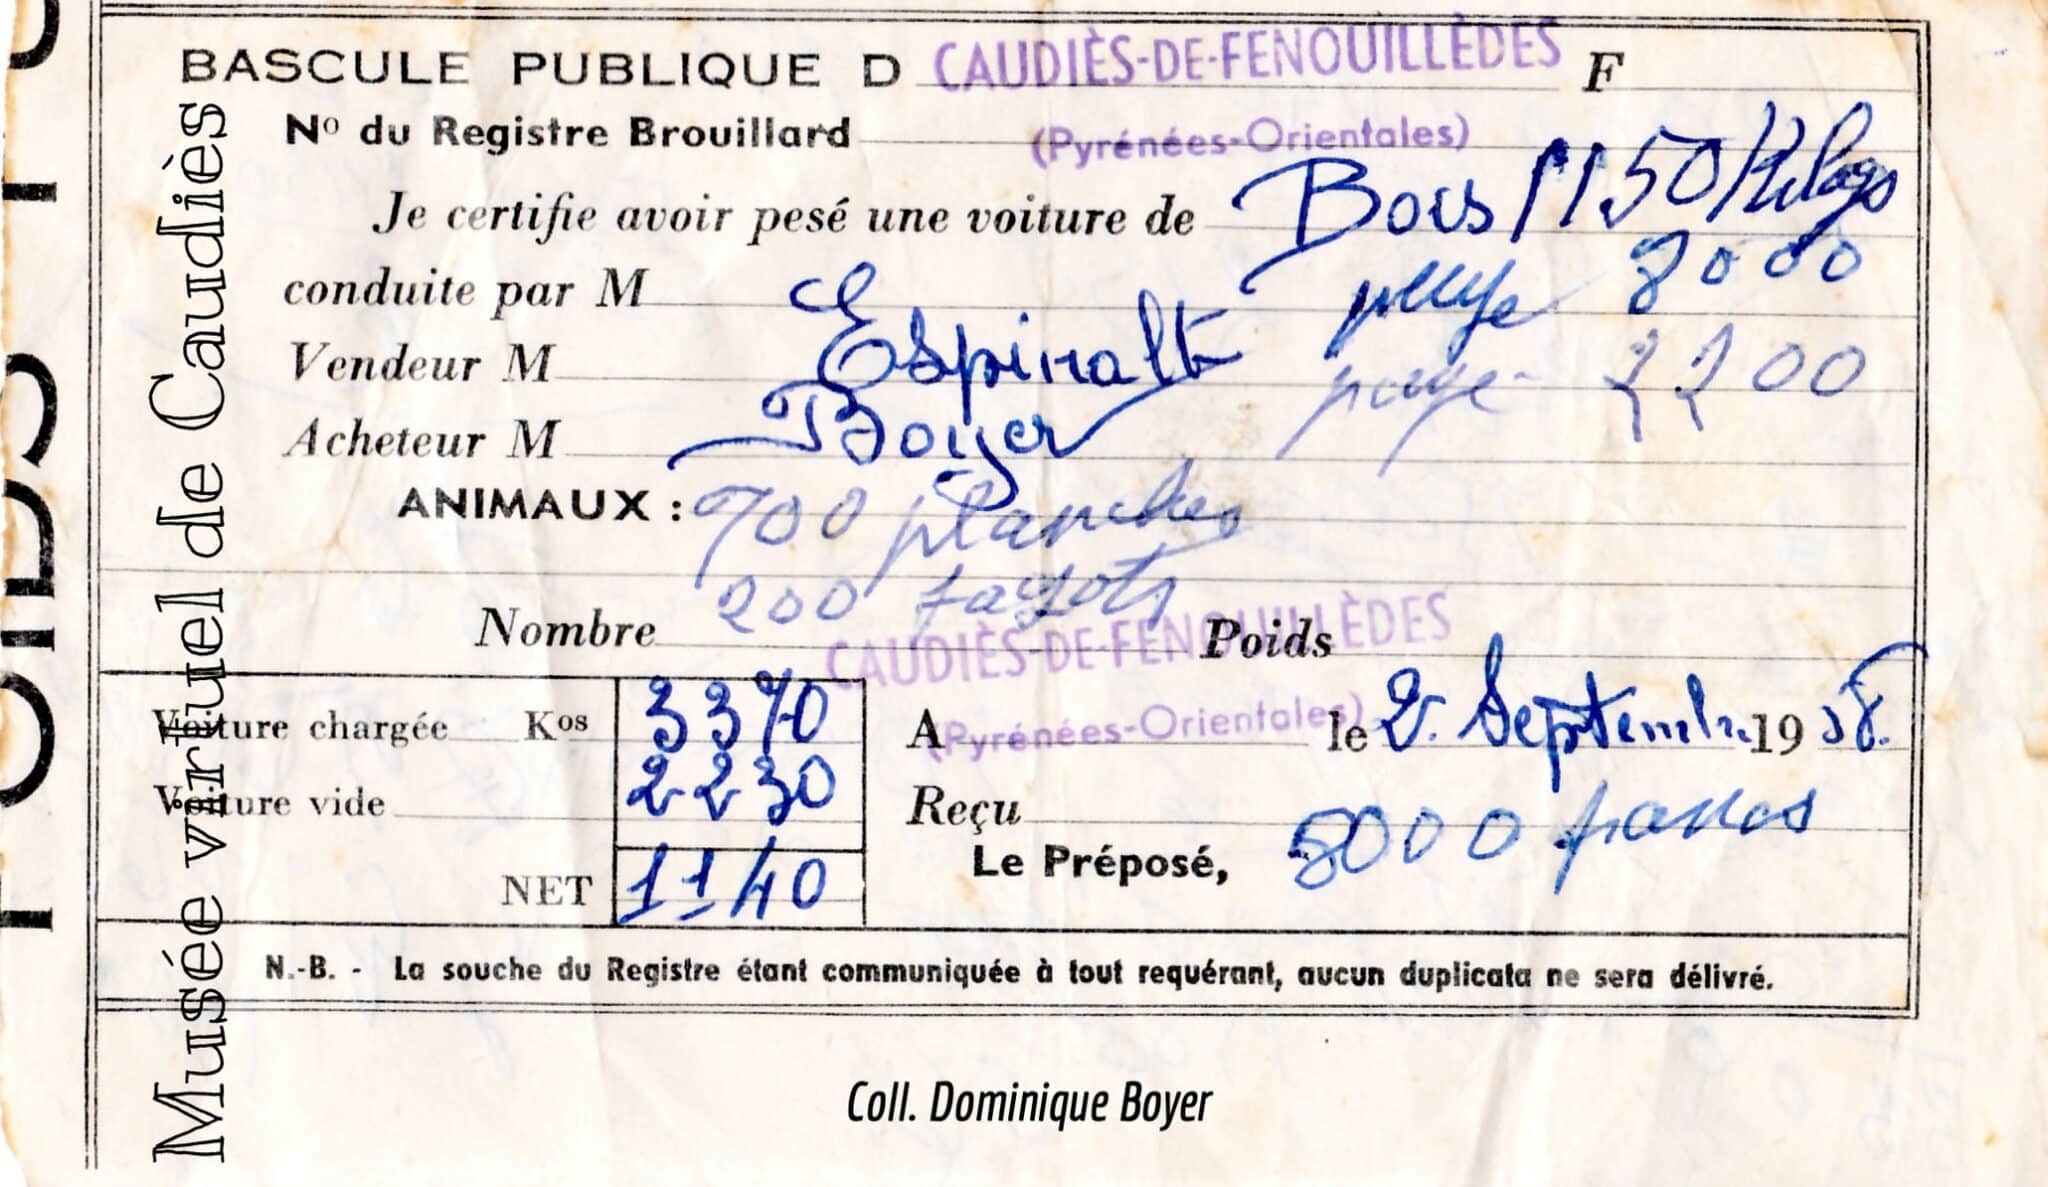 BASCULE PUBLIQUE D CAUDIÈS-DE-FENOUILLÈDES F
(Pyrénées-Orientales)
No du Registre Brouillard
Je certifie avoir pesé une voiture de Bois 1150 Kilogs
conduite par M paye 8000
Vendeur M Espinalt paye 2200
Acheteur M Boyer
ANIMAUX : 900 planches
200 fagots
Nombre Poids
CAUDIÈS-DE-FENOUILLÈDES
(Pyrénées-Orientales)
Voiture chargée Kos 3370
A le 2 Septembre 1958.
Voiture vide 2230
Reçu
8000 francs
Le Préposé,
NET 1140
N.-B. - La souche du Registre étant communiquée à tout requérant, aucun duplicata ne sera délivré.
Coll. Dominique Boyer
Musée virtuel de Caudiès